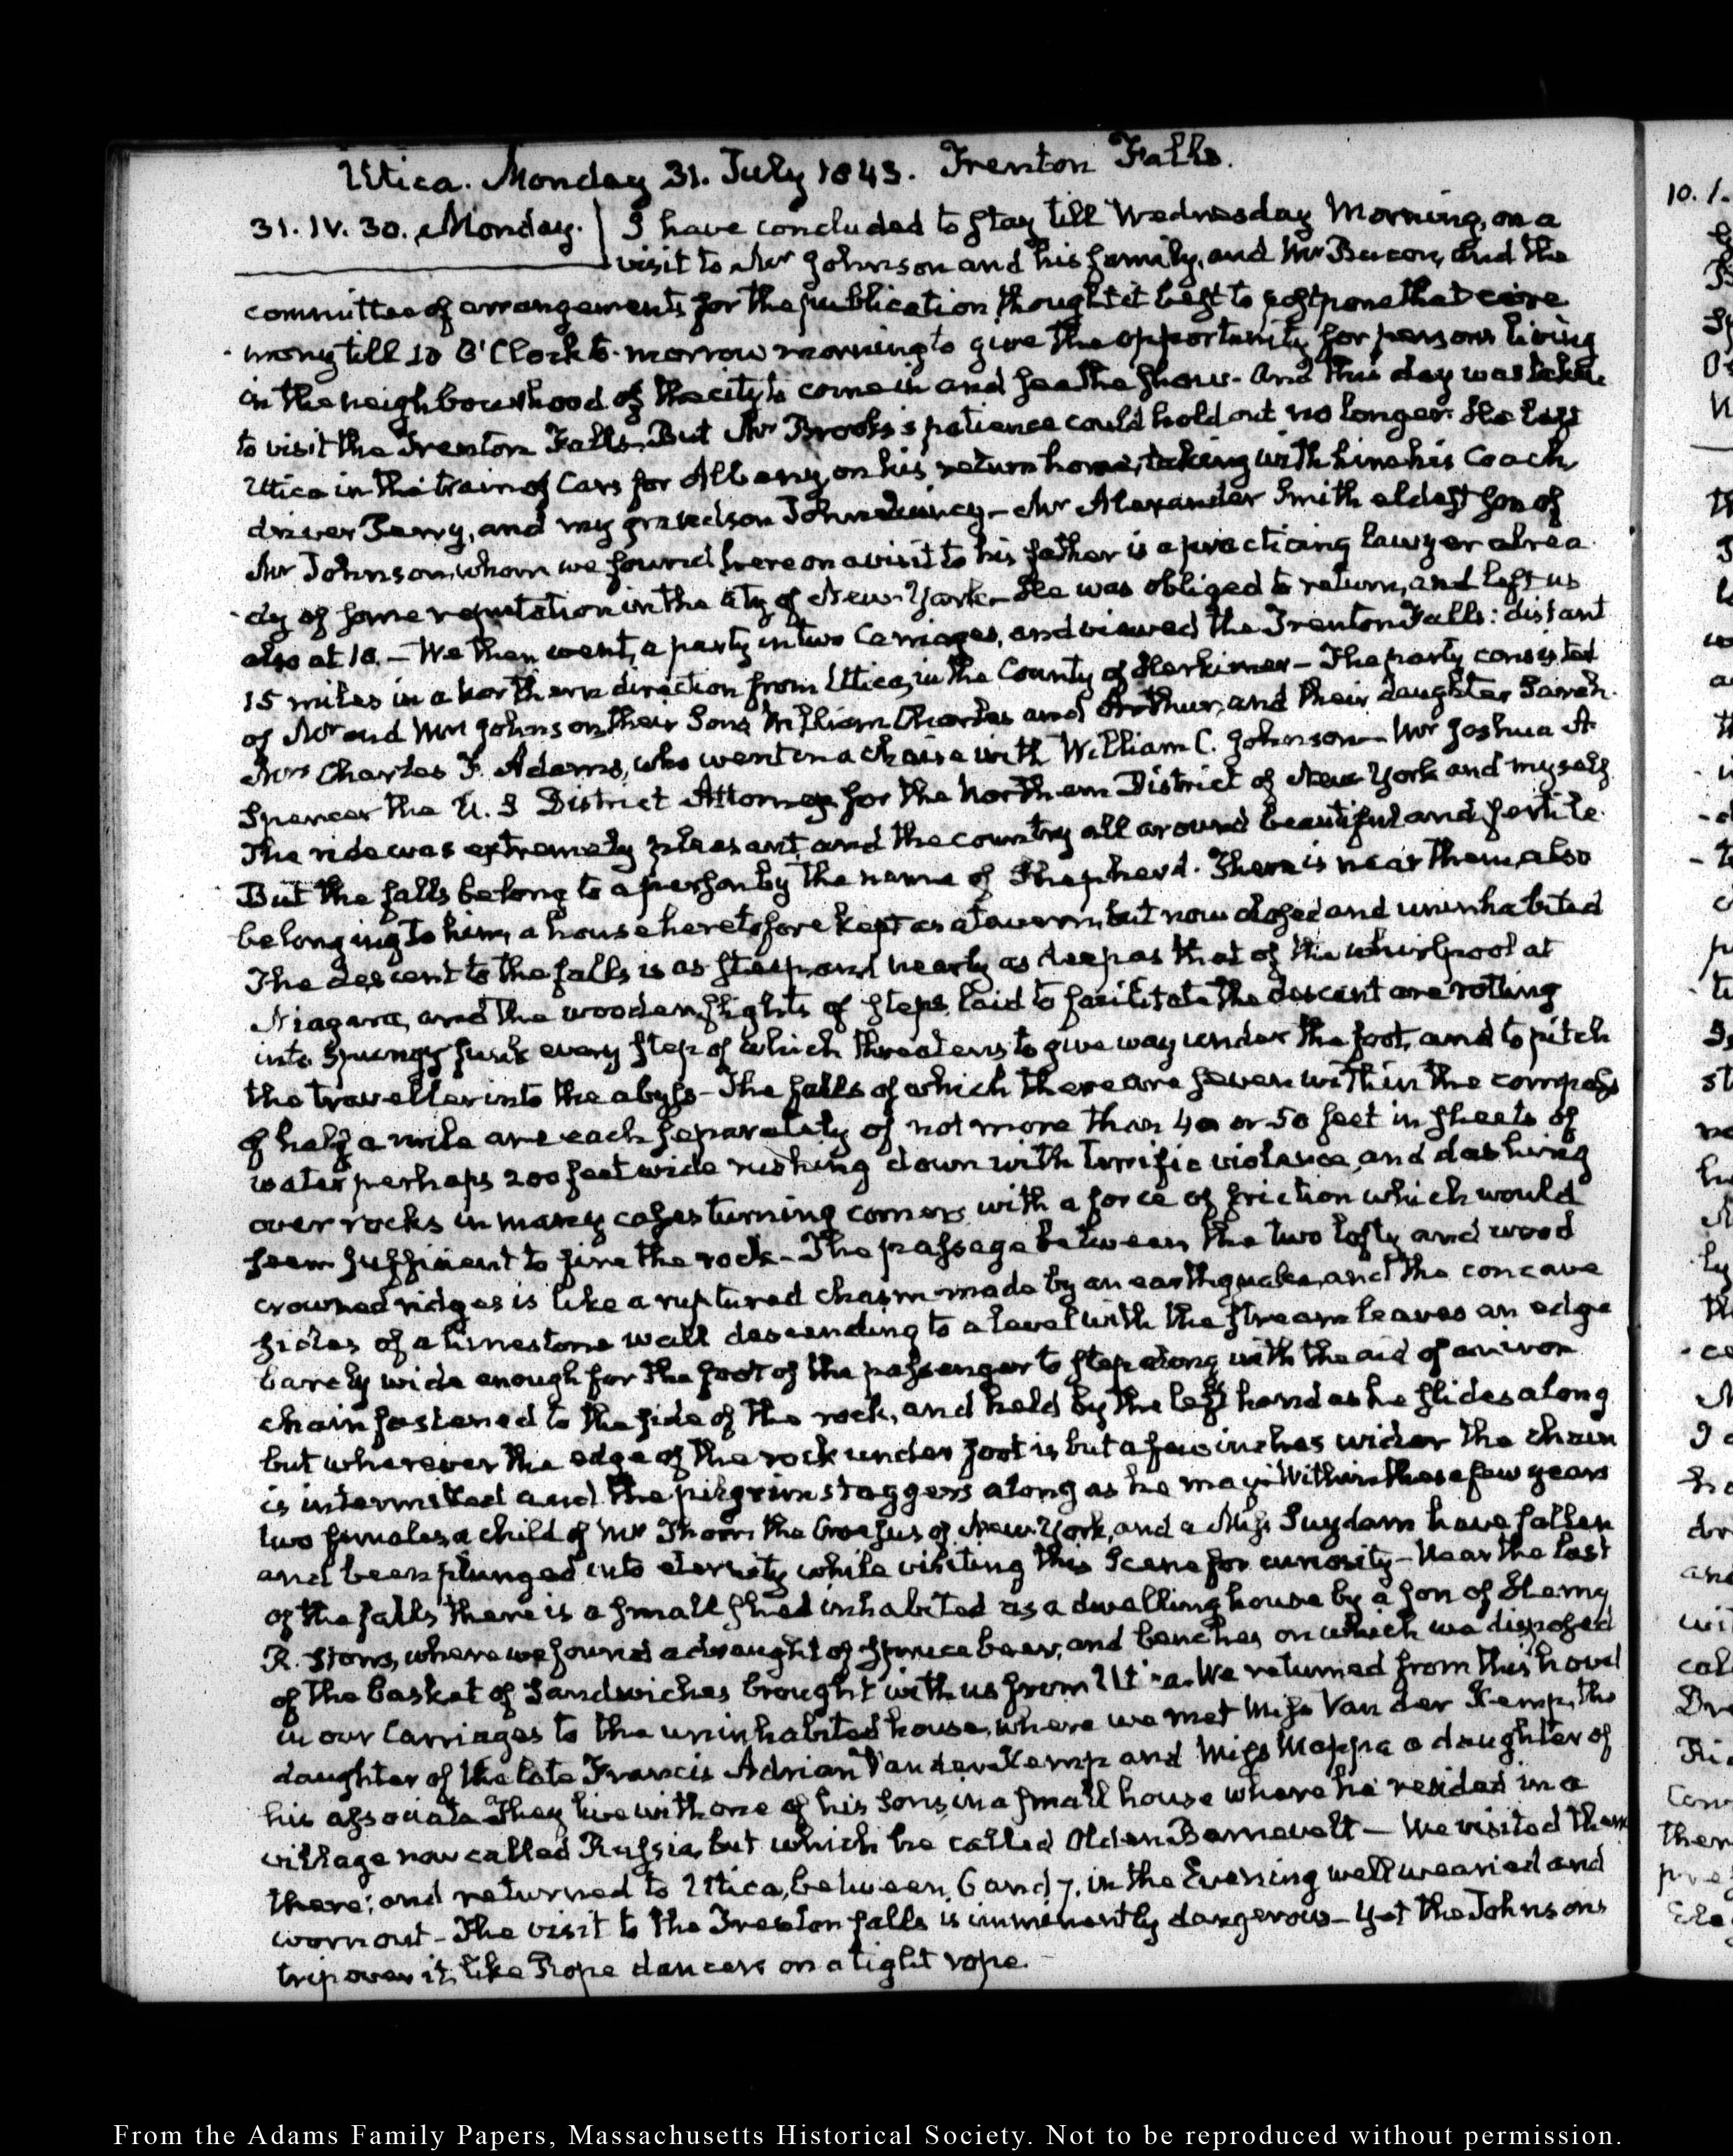 Utica. Monday 31. July 1843. Trenton Falls.
31. IV. 30. Monday. I have concluded to stay till Wednesday Morning, on a
visit to Mr Johnson and his family, and Mr Bacon, and the
committee of arrangements for the publication thought it best to postpone that cere
-mony till 10 O'Clock to-morrow morning to give the opportunity for persons living
in the neighbourhood of the city to come in and see the show. And this day was taken
to visit the Trenton Falls. But Mr Brooks's patience could hold out no longer. He left
Utica in the train of Cars for Albany, on his return home, taking with him his Coach
driver Jerry, and my grandson John Quincy – Mr Alexander Smith eldest son of
Mr Johnson whom we found here on a visit to his father is a practicing lawyer alrea
-dy of some reputation in the City of New-York – He was obliged to return, and left us
also at 10. – We then went, a party in two Carriages, and viewed the Trenton Falls: distant
15 miles in a Northern direction from Utica, in the County of Herkimer – The party consisted
of Mr and Mrs Johnson, their Sons William Charles and Arthur, and their daughter Sarah.
Mrs Charles F. Adams, who went in a chaise with William C. Johnson – Mr Joshua A
Spencer the U. S District Attorney for the Northern District of New York and myself
The ride was extremely pleasant and the country all around beautiful and fertile.
But the falls belong to a person by the name of Shepherd. There is near them, also
belonging to him, a house heretofore kept as a tavern, but now closed and uninhabited
The descent to the falls is as steep and nearly as deep as that of the whirlpool at
Niagara, and the wooden flights of steps laid to facilitate the descent are rotting
into spungy junk every step of which threatens to give way under the foot, and to pitch
the traveller into the abyss – The falls of which there are seven within the compass
of half a mile are each separately of not more than 40 or 50 feet in sheets of
water perhaps 200 feet wide rushing down with terrific violence, and dashing
over rocks in many cases turning corners with a force of friction which would
seem sufficient to fire the rock – The passage between the two lofty and wood
crowned ridges is like a ruptured chasm made by an earthquake, and the concave
sides of a limestone wall descending to a level with the stream leaves an edge
barely wide enough for the foot of the passenger to step along with the aid of an iron
chain fastened to the side of the rock, and held by the left hand as he slides along
but wherever the edge of the rock under foot is but a few inches wider the chain
is intermitted and the pilgrim staggers along as he may. Within these few years
two females, a child of Mr Thorn the Croesus of New-York, and a Miss Suydam have fallen
and been plunged into eternity while visiting this Scene for curiosity – Near the last
of the falls there is a small shed inhabited as a dwelling house by a son of Henry
R. Storrs, where we found a draught of spruce beer, and benches on which we disposed
of the basket of Sandwiches brought with us from Utica. We returned from this hovel
in our Carriages to the uninhabited house, where we met Miss Van der Kemp, the
daughter of the late Francis Adrian Vander Kemp and Miss Mappa a daughter of
his associate They live with one of his Sons, in a small house where he resided in a
village now called Russia, but which he called Olden Barnevelt – We visited them
there; and returned to Utica, between 6 and 7. in the Evening well wearied and
worn out – The visit to the Trenton falls is imminently dangerous – yet the Johnsons
trip over it, like Rope dancers on a tight rope.
From the Adams Family Papers, Massachusetts Historical Society. Not to be reproduced without permission.